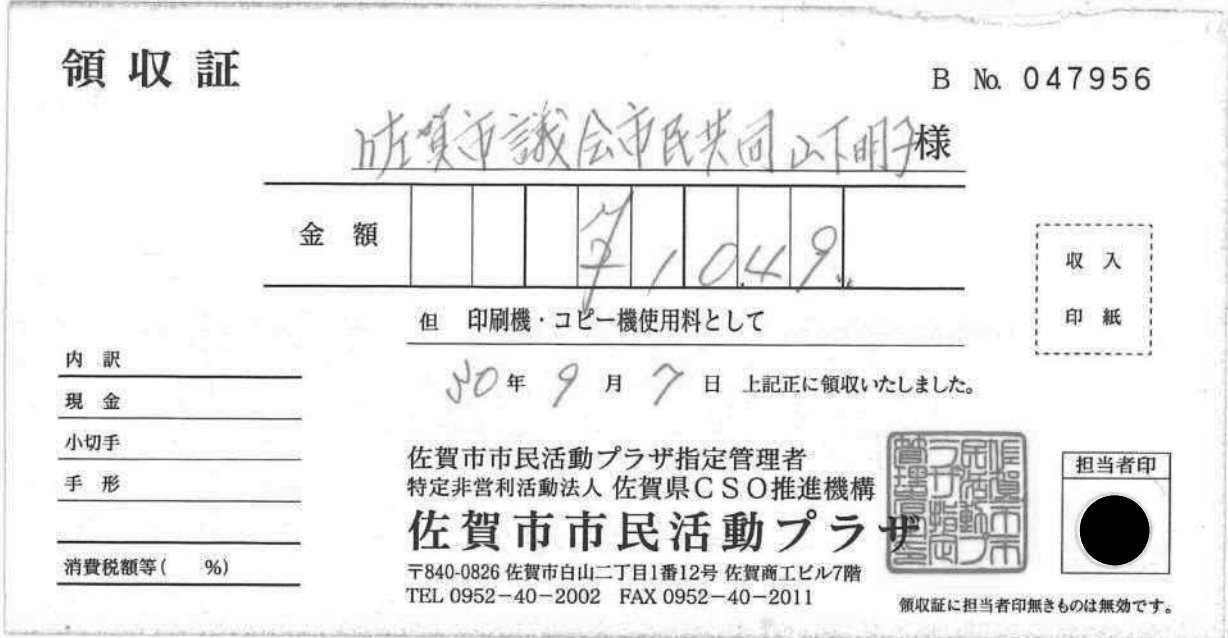 領収証
B No. 047956
佐賀市議会市民共同 山下明子様
金額 ¥1,049
但 印刷機・コピー機使用料として
収入
印紙
30年9月7日 上記正に領収いたしました。
内訳
現金
小切手
手形
消費税額等( %)
佐賀市市民活動プラザ指定管理者
特定非営利活動法人 佐賀県CSO推進機構
佐賀市市民活動プラザ
〒840-0826 佐賀市白山二丁目1番12号 佐賀商工ビル7階
TEL 0952-40-2002 FAX 0952-40-2011
担当者印
領収証に担当者印無きものは無効です。